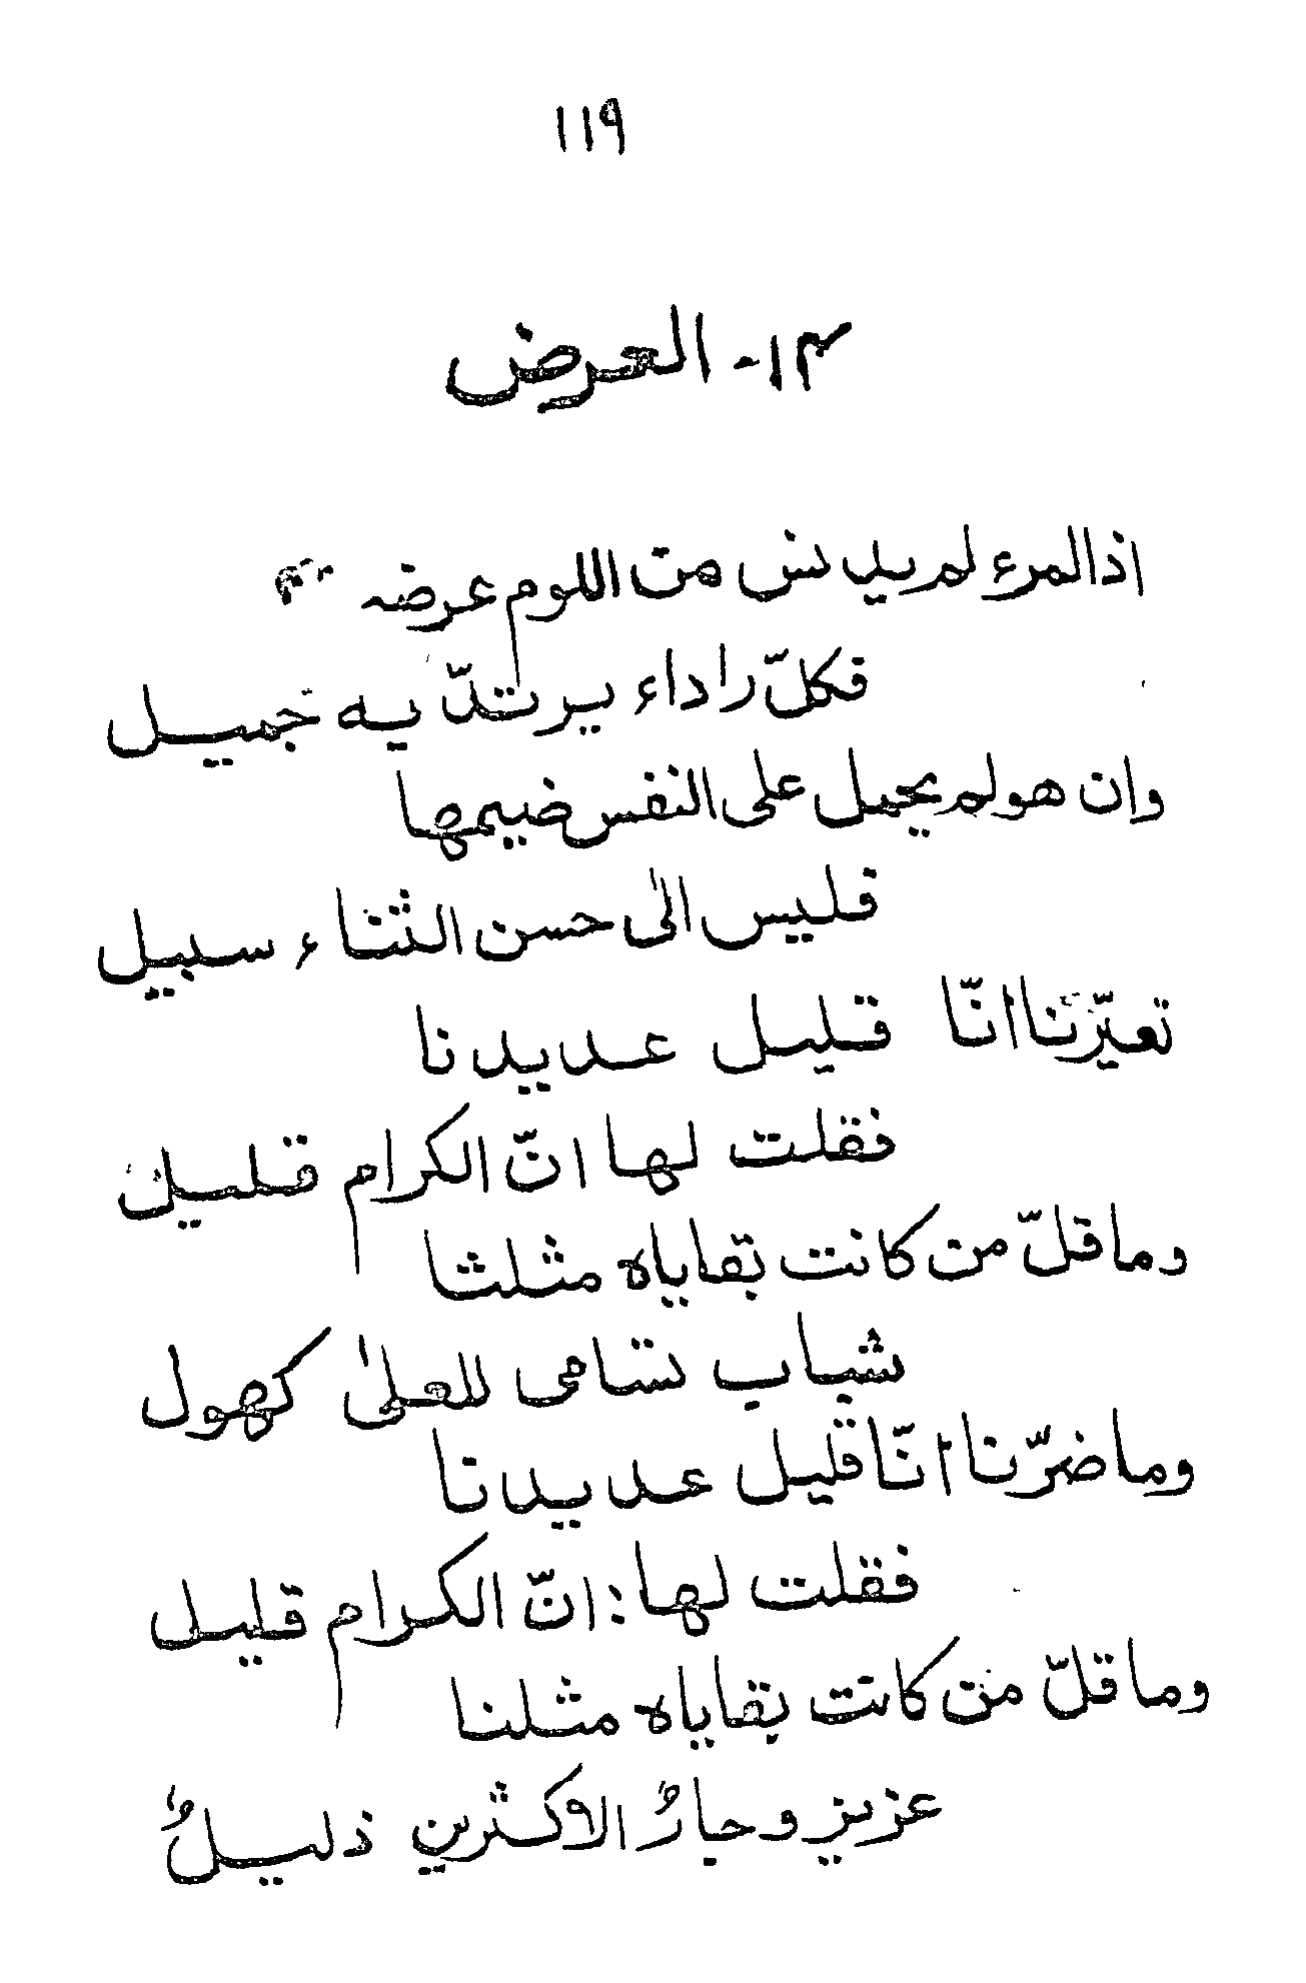 ۱۱۹
۱۴- العرض
اذالمرء لم يدنس من اللوم عرضه
فكلّ راداء يرتدّيه جميل
وان هولم يحمل على النفس ضيمها
فليس الىٰ حسن الثناء سبيل
تعيّرنا انّا قليل عديدنا
فقلت لها انّ الكرام قليل
وما قلّ من كانت بقاياه مثلنا
شباب تسامى للعلىٰ كهول
وما ضرّنا انّا قليل عديدنا
فقلت لها: انّ الكرام قليل
وما قلّ من كانت بقاياه مثلنا
عزيز و جارُ الاكثرين ذليلُ